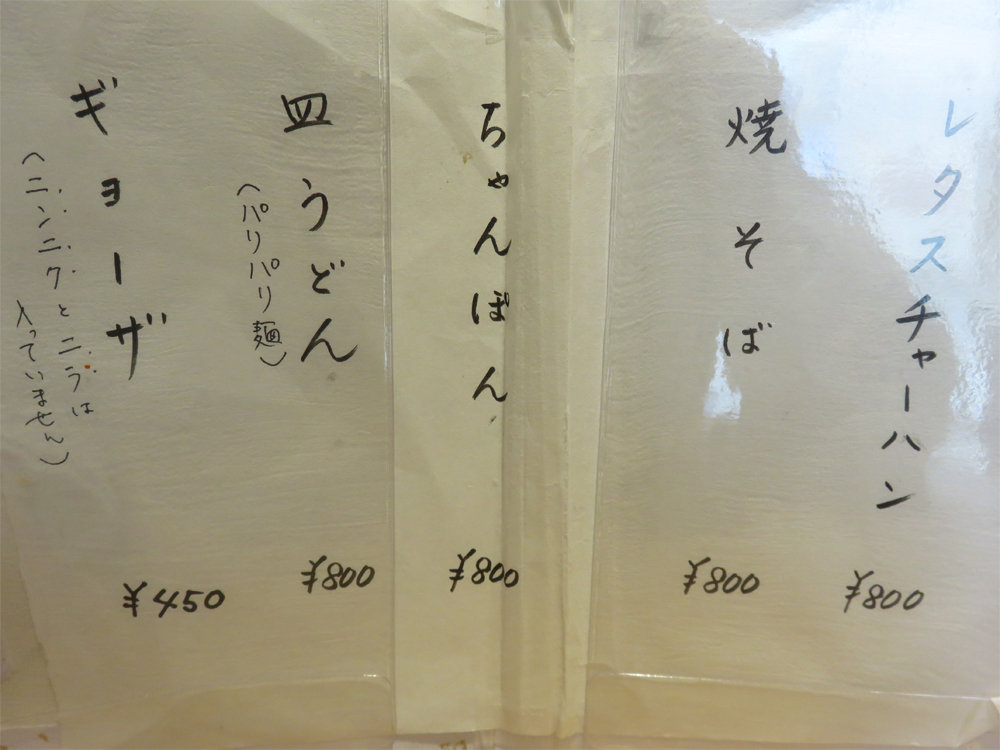 レタスチャーハン
¥800
焼そば
¥800
ちゃんぽん
¥800
皿うどん
(パリパリ麺)
¥800
ギョーザ
¥450
(ニンニクとニラは
入っていません)